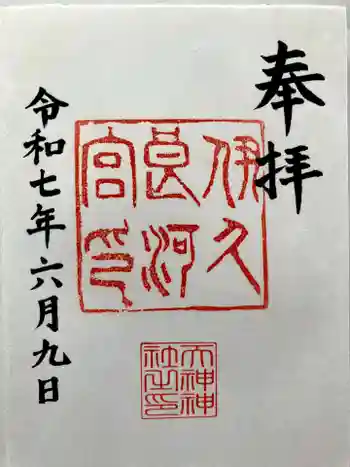 奉拝
伊久
良河
宮印
大神神
社之印
令和七年六月九日